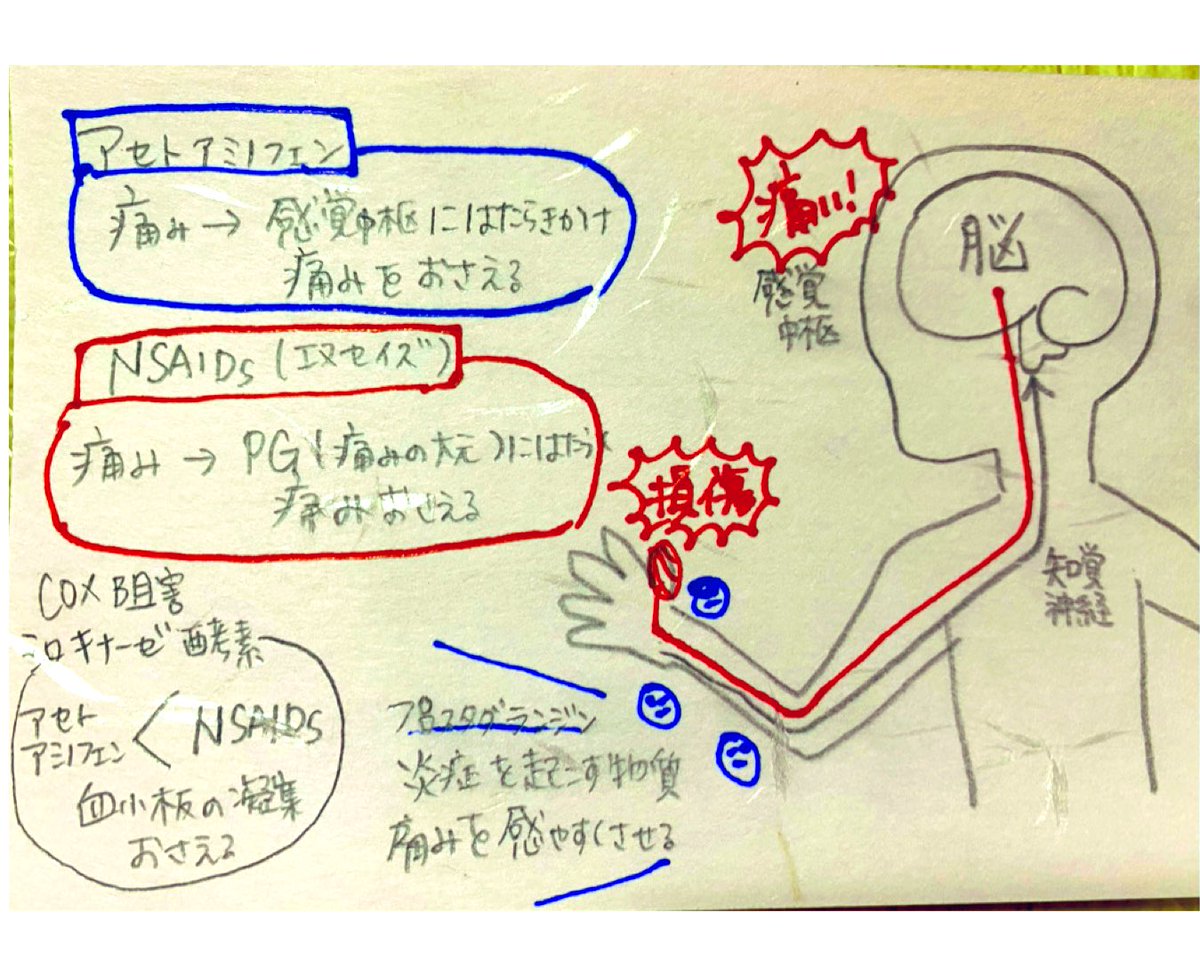 アセトアミノフェン
痛み→ 感覚中枢にはたらきかけ
痛みをおさえる
NSAIDs (エヌセイズ)
痛み → PG (痛みの大元)にはたらく
痛みおさえる
COX阻害
シロキナーゼ酵素
アセト
アミノフェン < NSAIDs
血小板の凝集
おさえる
プロスタグランジン
炎症を起こす物質
痛みを感やすくさせる
痛い!
感覚
中枢
脳
損傷
知覚
神経